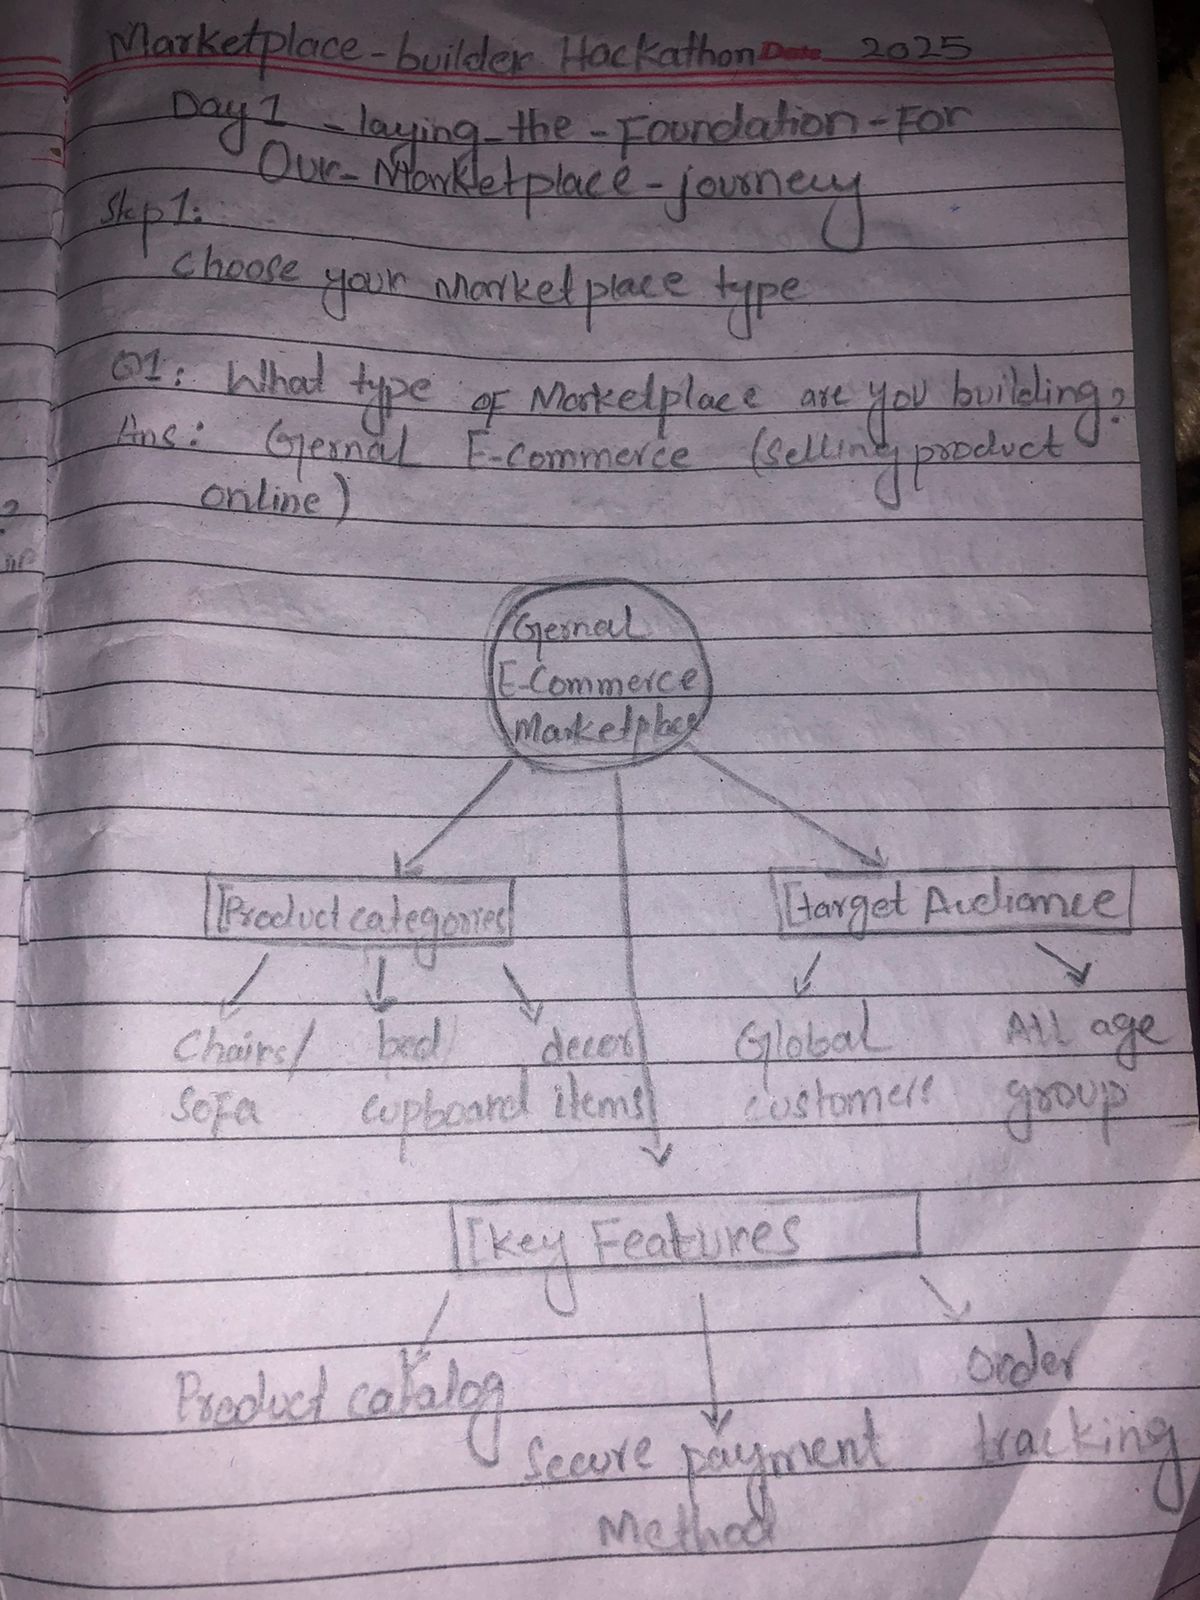 Marketplace-builder Hackathon Date 2025
Day 1 - laying-the-Foundation-For
Our-Marketplace-journey
Step 1:
Choose your Marketplace type
Q1: What type of Marketplace are you building?
Ans: Gernal E-Commerce (selling product
online)
Gernal
E-Commerce
Marketplace
[Product categories]
[target Audiance]
Chairs/
sofa
bed
cupboard
decor
items
Global
customers
All age
group
[key Features
Product catalog
Secure payment
Method
Order
tracking